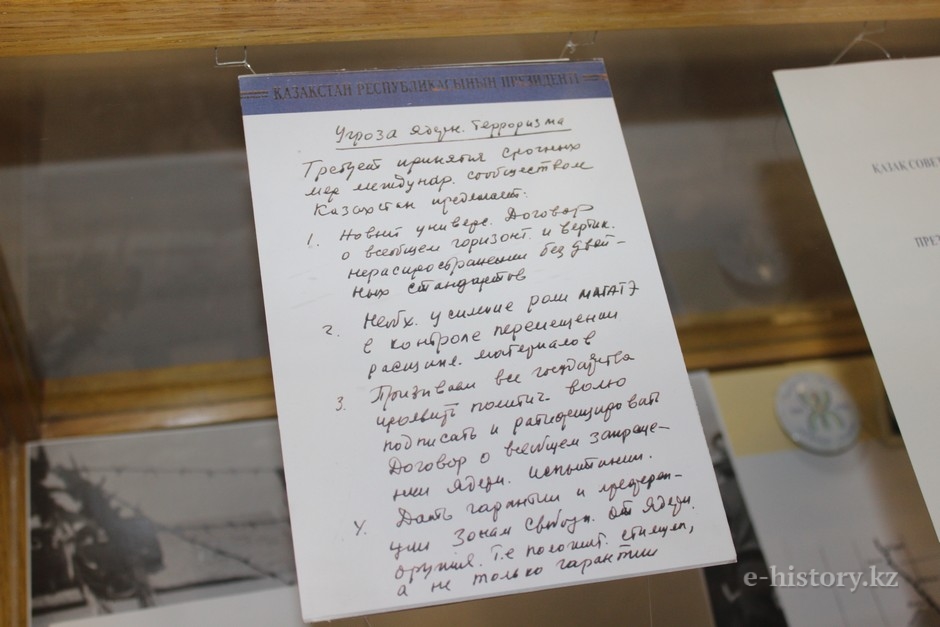 ҚАЗАҚСТАН РЕСПУБЛИКАСЫНЫҢ ПРЕЗИДЕНТІ
Угроза ядерн. терроризма
Требует принятия срочных
мер междунар. сообществом
Казахстан предлагает:
1. Новый универс. Договор
о всеобщем горизонт. и вертик.
нераспространении без двой-
ных стандартов
2. Необх. усиление роли МАГАТЭ
в контроле перемещении
расщепл. материалов
3. Призываем все государства
проявить политич. волю
подписать и ратифицировать
Договор о всеобщем запреще-
нии ядерн. испытании.
4. Дать гарантии и преферен-
ции Зонам свободн. от ядерн.
оружия. Т.е положит. стимул,
а не только гарантии
КАЗАК СОВЕ
ПРЕ
e-history.kz